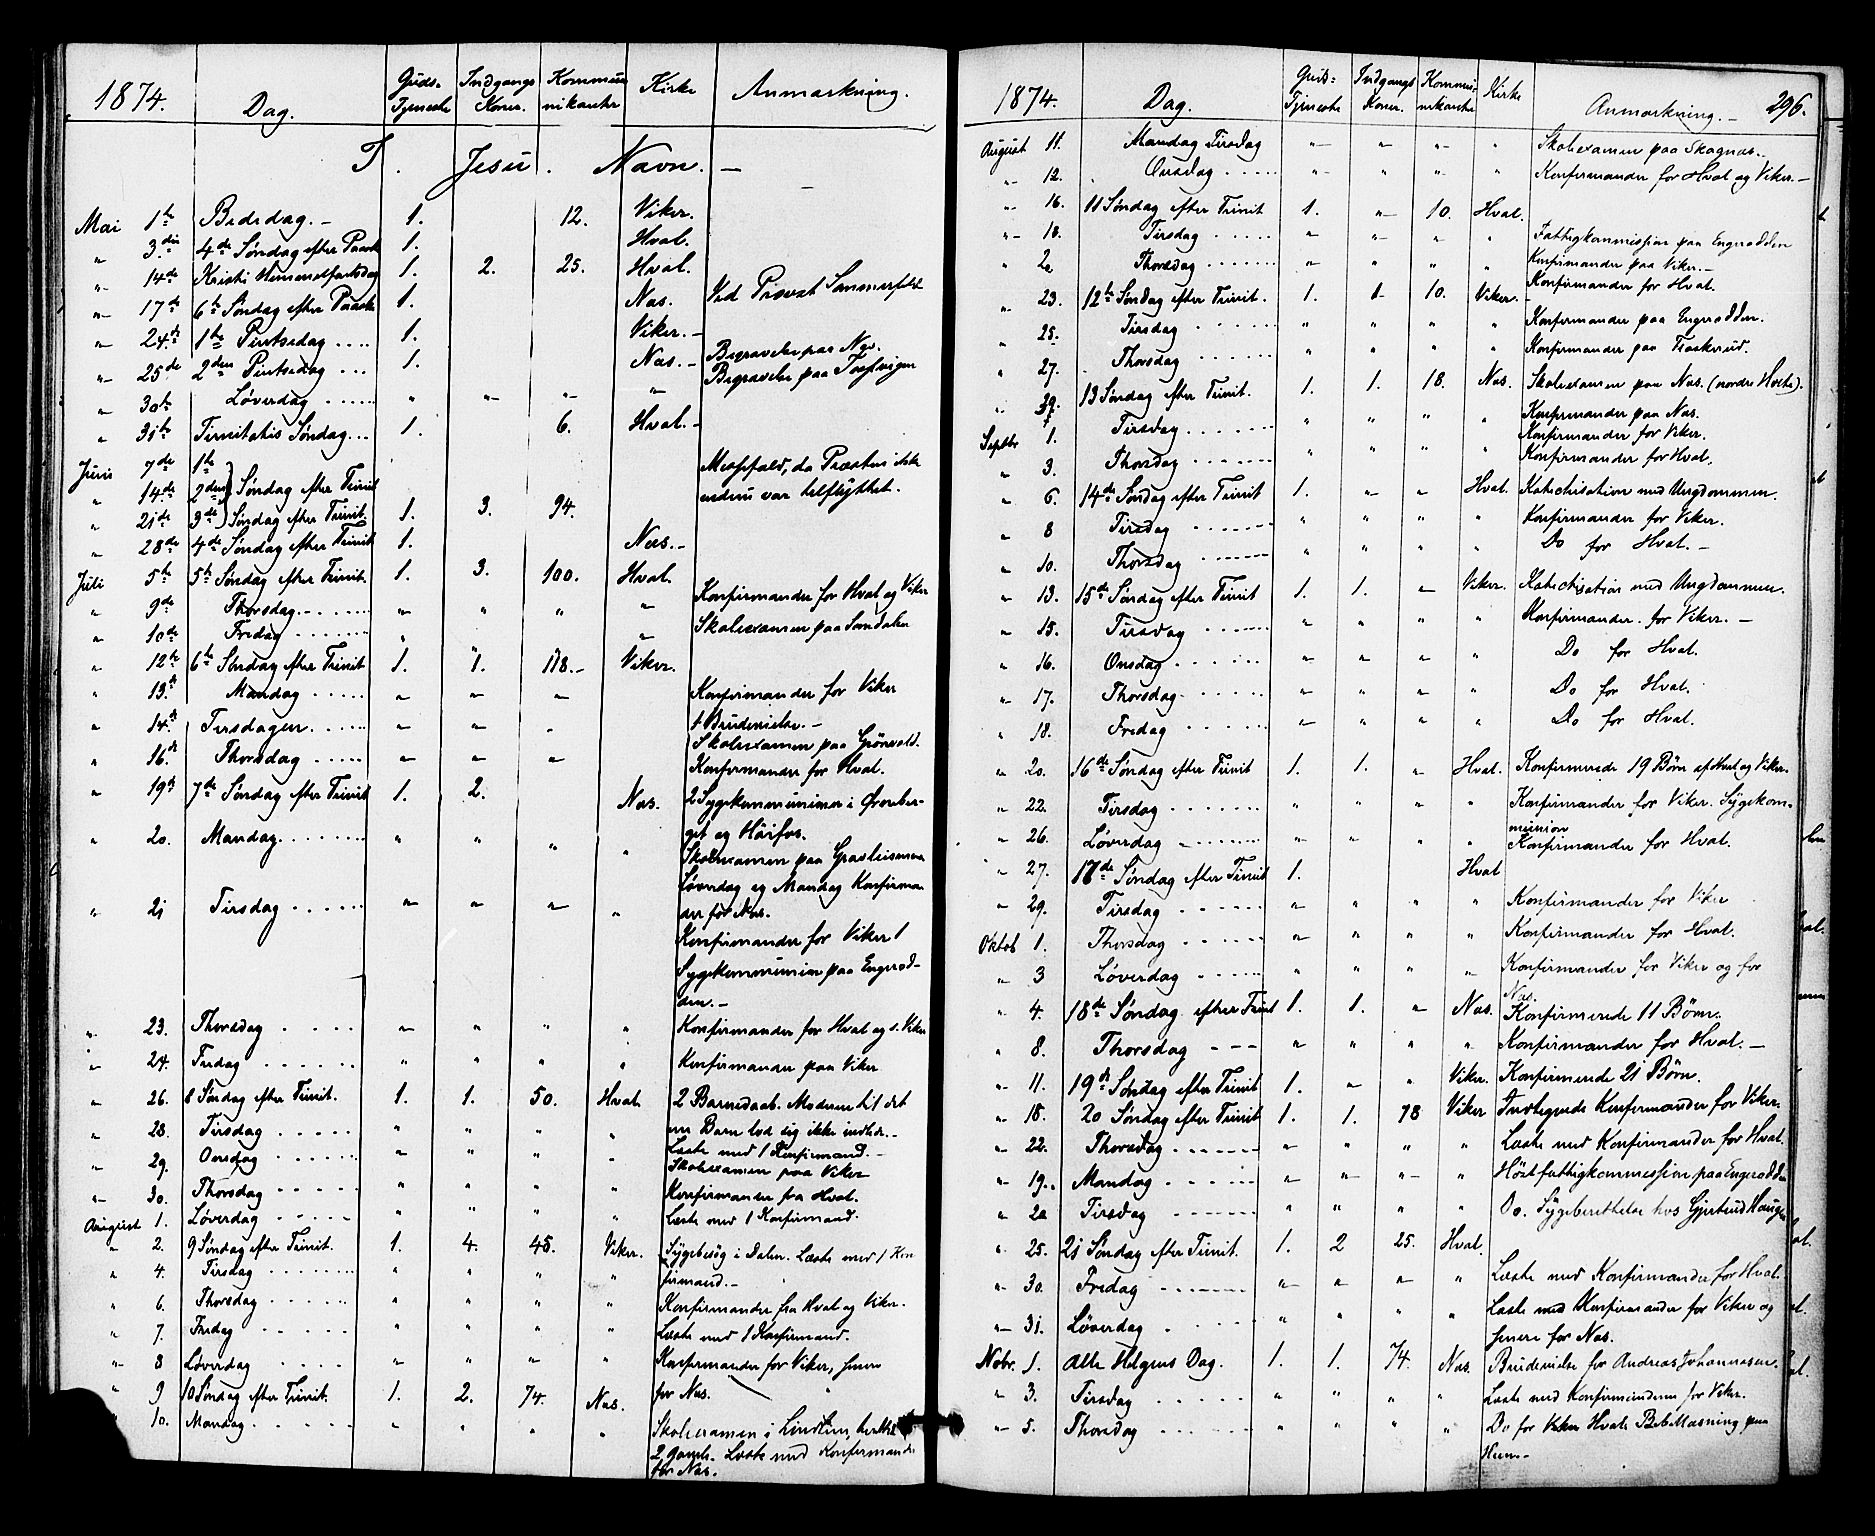 1874. Dag. Guds-Tjeneste Indgangs Koner. Kommunikanter Kirke Anmærkning.
I. Jesu. Navn. —
Mai 1ste Bededag. — 1. 12. Viker.
" 3die 4de Søndag efter Paaske 1. Hval.
" 14de Kristi Himmelfartsdag 1. 2. 25. Hval.
" 17de 6te Søndag efter Paaske 1. Næs. Ved Provst Sommerfeldt
" 24de 1ste Pintsedag .... 1. Viker. —
" 25de 2den Pintsedag ... 1. Næs. — Begravelse paa Næs.
" 30te Løverdag ..... " " " " Begravelse paa
" 31te Trinitatis Søndag... 1. 6. Hval. —
Juni 7de 1ste
" 14de 2den } Søndag efter Trinit Messefald, da Præsten ikke
" 21de 3de Søndag efter Trinit. 1. 3. 94. endnu var tilflyttet.
" 28de 4de Søndag efter Trinit 1. Næs. —
Juli 5te 5te Søndag efter Trinit. 1. 3. 100. Hval.
" 9de Thorsdag ....... " " " " Konfirmander for Hval og Viker
" 10de Fredag ....... " " " Skoleexamen paa Sandalen
" 12te 6te Søndag efter Trinit 1. 1. 118. — Viker.
" 13de Mandag ..... " " " Konfirmander for Viker
" 14de Tirsdagen...... " " " 1 Brudevielse. —
Skoleexamen paa Grønvold.
" 16de Thorsdag ..... " " " Konfirmander for Hval.
" 19de 7de Søndag efter Trinit 1. 2. Næs. 2 Sygekommunioner i
get og Høifos.
" 20. Mandag........ " " " " Skoleexamen paa
Løverdag og Mandag Konfirman-
der for Næs.
" 21 Tirsdag ...... " " " " Konfirmander for Viker 1
Sygekommunion paa Engerod-
den. —
" 23. Thorsdag .... " " " " Konfirmander for Hval og s. Viker
" 24. Fredag ...... " " " " Konfirmander paa Viker
" 26. 8 Søndag efter Trinit. 1. 1. 50. Hval 2 Barnedaab. Moderen til det
" 28. Tirsdag ...... " " " " ene Barn lod sig ikke indlede. —
" 29. Onsdag ...... " " " " Læste med 1 Konfirmand. —
Skoleexamen paa Viker
" 30. Thorsdag ..... " " " " Konfirmander fra Hval.
August 1. Løverdag ..... " " " " Læste med 1 Konfirmand.
" 2. 9 Søndag efter Trinit. 1. 4. 45. Viker. Sygebesøg i Dalen. Læste med 1 Kon
" 4. Tirsdag ....... " " " " firmand. —
" 6. Thorsdag ...... " " " " Konfirmander fra Hval og Viker.
" 7. Fredag ...... " " " " Læste med 1 Konfirmand.
" 8 Løverdag ..... " " " " Konfirmander for Viker, senere
" 9 10 Søndag efter Trinit. 1. 2. 74. Næs. for Næs.
" 10. Mandag ..... " " " " Skoleexamen i
2 gamle. Læste med Konfirmander
for Næs.
1874. Dag. Guds-Tjeneste Indgangs Koner. Kommunikanter Kirke Anmærkning. — 296.
August 11. Mandag Tirsdag " " " " Skoleexamen paa Skagnæs. —
" 12. Onsdag ..... " " " " Konfirmander for Hval og Viker. —
" 16. 11 Søndag efter Trinit 1. " 10. Hval.
" 18. Tirsdag ..... " " " " Fattigkommission paa Engerodden
" 20 Thorsdag ....... " " " " Konfirmander paa Viker. —
Konfirmander for Hval.
" 23. 12te Søndag efter Trinit. 1. 1 10. Viker. —
" 25. Tirsdag ...... " " " " Konfirmander paa Engerodden.
" 27. Thorsdag ...... " " " " Konfirmander paa
" 30. 13 Søndag efter Trinit. 1. 1. 18. Næs. Skoleexamen paa Næs. (nordre Hvete).
Konfirmander paa Næs.
Septbr 1. Tirsdag....... " " " " Konfirmander for Viker.
" 3. Thorsdag ...... " " " " Konfirmander for Hval.
" 6. 14de Søndag efter Trinit 1. " " Hval. Katechisation med Ungdommen.
" 8 Tirsdag ...... " " " " Konfirmander for Viker.
" 10. Thorsdag ...... " " " " Do for Hval. —
" 13. 15de Søndag efter Trinit 1. 1. " Viker. Katechisation med Ungdommen.
" 15. Tirsdag ...... " " " " Konfirmander. for Viker. —
" 16. Onsdag ...... " " " " Do for Hval.
" 17. Thorsdag....... " " " " Do for Hval.
" 18. Fredag ...... " " " " Do for Hval.
" 20. 16de Søndag efter Trinit 1. 1. " Hval. Konfirmerede 19 Børn af Hval og Viker.
" 22. Tirsdag ....... " " " " Konfirmander for Viker. Sygekom-
munion
" 26. Løverdag ........ " " " " Konfirmander for Hval.
" 27. 17de Søndag efter Trinit 1. Hval
" 29. Tirsdag ...... " " " " Konfirmander for Viker
Oktob 1. Thorsdag ..... " " " " Konfirmander for Hval.
" 3 Løverdag ..... " " " " Konfirmander for Viker og for
Næs.
" 4. 18de Søndag efter Trinit 1. 1. " Næs. Konfirmerede 11 Børn.
" 8. Thorsdag --- " " " " Konfirmander for Hval. —
" 11. 19de Søndag efter Trinit 1. " " Viker. Konfirmerede 21 Børn.
" 18. 20 Søndag efter Trinit 1. 1. 78 Viker Indtegnede Konfirmander for Viker.
" 22. Thorsdag....... " " " " Læste med Konfirmander for Hval.
" 19. Mandag ...... " " " " Høstfattigkommission paa Engerodden
" 20 Tirsdag ....... " " " " Do. Sygeberettelse hos Gjertrud Haugen
" 25. 21 Søndag efter Trinit. 1. 2 25. Hval.
" 30. Fredag ....... " " " " Læste med Konfirmander for Hval.
" 31. Løverdag ..... " " " " Læste med Konfirmander for Viker og
senere for Næs.
Novbr. 1. Alle Helgens Dag. 1. 1. 74. Næs. Brudevielse for Andreas Johannessen.
" 3. Tirsdag ...... " " " " Læste med Konfirmanderne for Viker.
" 5. Thorsdag ...... " " " " Do for Viker Hvale. Bibellæsning paa
Heen. —